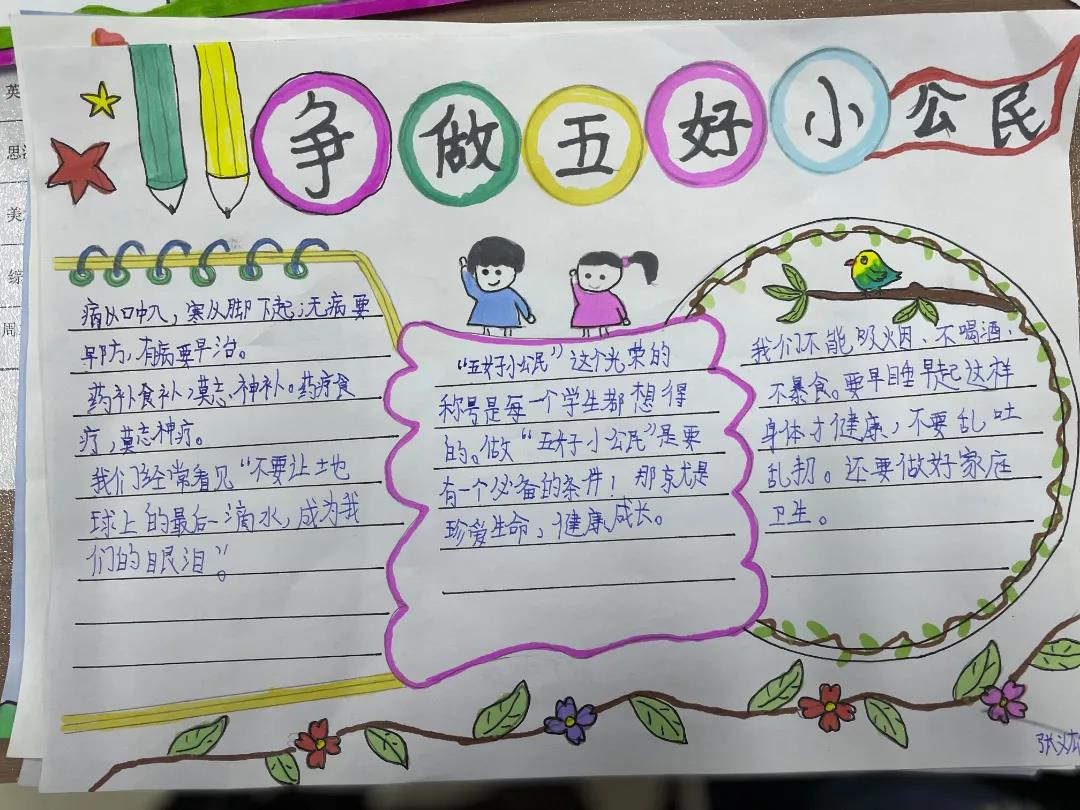 争做五好小公民
病从口中入，寒从脚下起；无病要
早防，有病要早治。
药补食补，莫忘神补。药疗食
疗，莫忘神疗。
我们经常看见“不要让地
球上的最后一滴水，成为我
们的眼泪”。
“五好小公民”这个光荣的
称号是每一个学生都想得
的。做“五好小公民”是要
有一个必备的条件！那京尤是
珍爱生命，健康成长。
我们不能吸烟、不喝酒
不暴食。要早睡早起这样
身体才健康，不要乱吐
乱扔。还要做好家庭
卫生。
张义
英
美
综
周